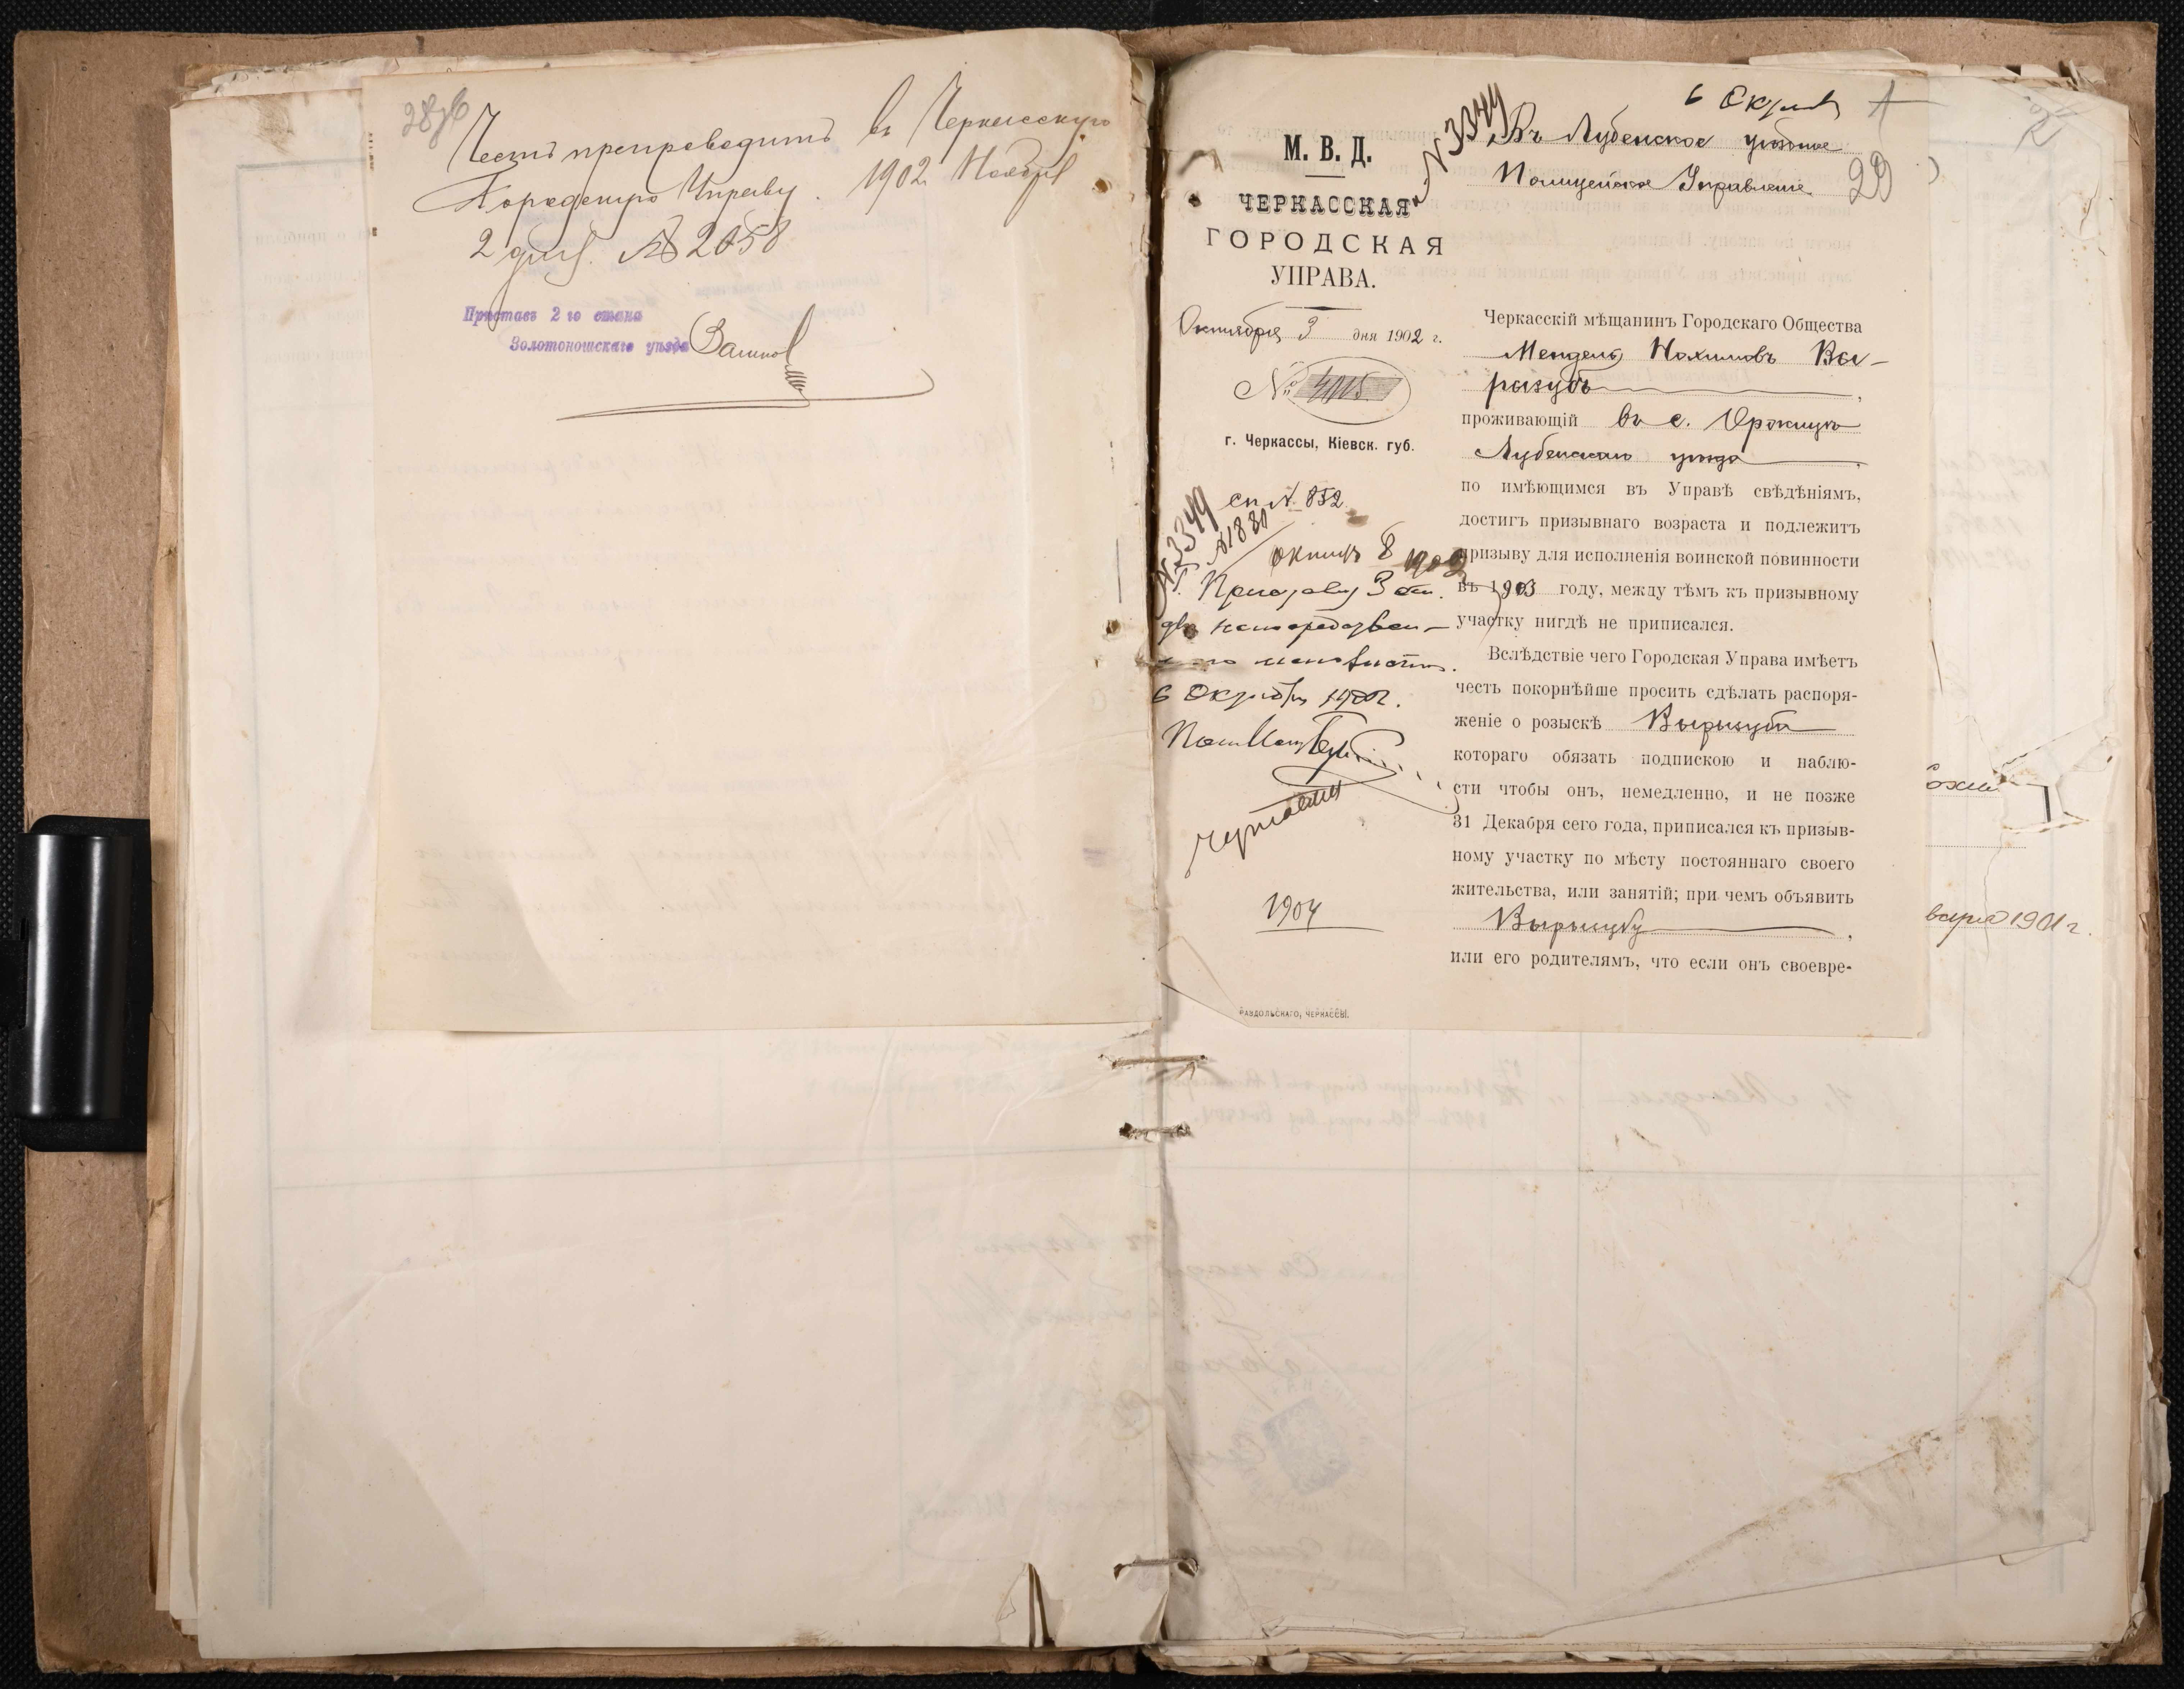 28об
Честь препроводить въ Черкасскую
Городскую Управу. 1902 Ноября
2 дня. № 2058
Приставъ 2 го стана
Золотоношскаго уѣзда
6 Октяб
№ 3349
Въ Лубенское уѣздное
Полицейское Управленіе
29
М. В. Д.
ЧЕРКАССКАЯ
ГОРОДСКАЯ
УПРАВА.
Октября 3 дня 1902 г.
№ 4115
г. Черкассы, Кіевск. губ.
Черкасскій мѣщанинъ Городскаго Общества
Мендель Нохимовъ Вы-
рызубъ,
проживающій въ с.
Лубенскаго уѣзда,
по имѣющимся въ Управѣ свѣдѣніямъ,
достигъ призывнаго возраста и подлежитъ
призыву для исполненія воинской повинности
въ 1903 году, между тѣмъ къ призывному
участку нигдѣ не приписался.
Вслѣдствіе чего Городская Управа имѣетъ
честь покорнѣйше просить сдѣлать распоря-
женіе о розыскѣ Вырызуба
котораго обязать подпискою и наблю-
сти чтобы онъ, немедленно, и не позже
31 Декабря сего года, приписался къ призыв-
ному участку по мѣсту постояннаго своего
жительства, или занятій; при чемъ объявить
Вырызубу,
или его родителямъ, что если онъ своевре-
сп. № 852
№ 3349
№ 1880
1902
Приставу 3 ст.
6 Октября 1902.
1904
РАЗДОЛЬСКАГО, ЧЕРКАССЫ.
варя 1901 г.